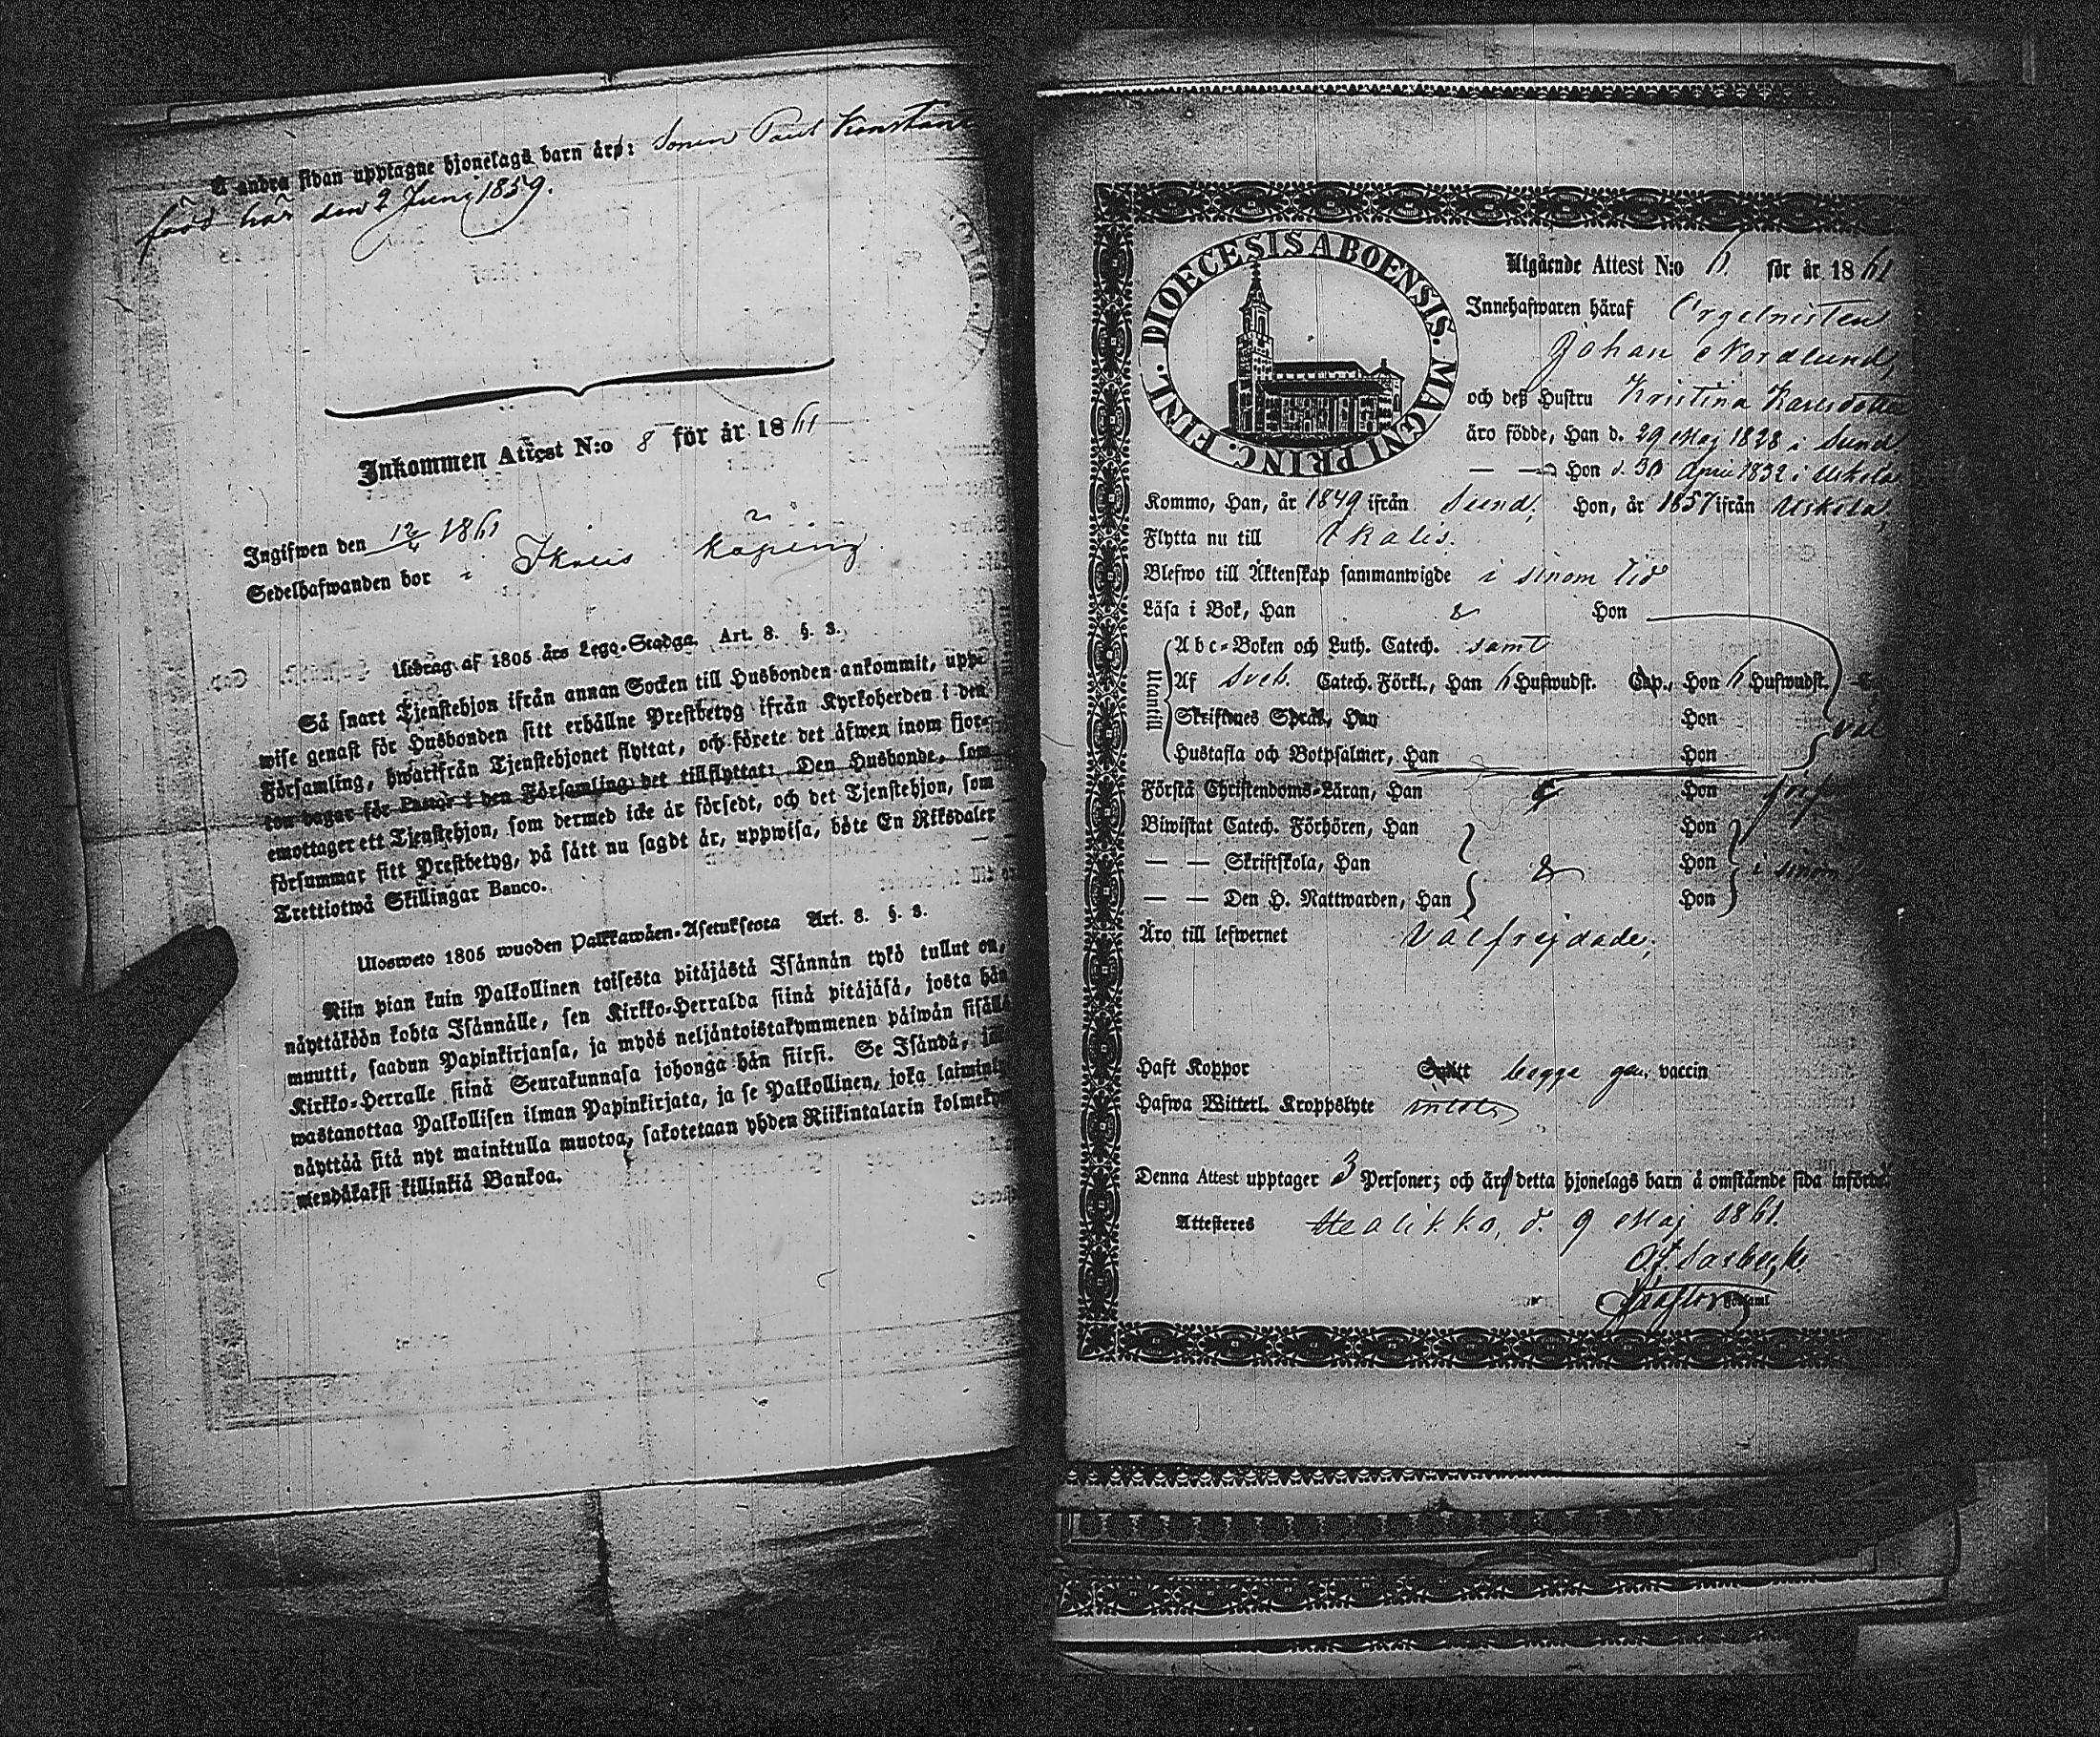 Å andra sidan upptagne hjonelags barn äro: Sonen Paul Konstant
född här den 2 Juni 1859.
Inkommen Attest N:o 8 för år 1861
Ingifwen den 12/6 1861
Sedelhafwanden bor i Ikalis köping
Utdrag af 1805 års Lego-Stadga. Art. 8. §. 3.
Så snart Tjenstehjon ifrån annan Socken till Husbonden ankommit, upp-
wise genast för Husbonden sitt erhållne Prestbetyg ifrån Kyrkoherden i den
Församling, hwarifrån Tjenstehjonet flyttat, och förete det äfwen inom fjor-
ton dagar för Pastor i den Församling det tillflyttat: Den Husbonde, som
emottager ett Tjenstehjon, som dermed icke är försedt, och det Tjenstehjon, som
försummar sitt Prestbetyg, på sätt nu sagdt är, uppwisa, böte En Riksdaler
Trettiotwå Skillingar Banco.
Ulosweto 1805 wuoden Palkkawäen-Asetuksesta Art. 8. §. 3.
Niin pian kuin Palkollinen toisesta pitäjästä Isännän tykö tullut on,
näyttäköön kohta Isännälle, sen Kirkko-Herralda siinä pitäjäsä, josta hän
muutti, saadun Papinkirjansa, ja myös neljäntoistakymmenen päiwän sisällä
Kirkko-Herralle siinä Seurakunnasa johonga hän siirsi. Se Isändä, jo
wastanottaa Palkollisen ilman Papinkirjata, ja se Palkollinen, joka laimin
näyttää sitä nyt mainitulla muotoa, sakotetaan yhden Riikintalarin kolmeky
mendäkaksi killinkiä Bankoa.
DIOECESIS ABOENSIS. MAGNI PRINC. FINL.
Utgående Attest N:o 6. för år 1861
Innehafwaren häraf Orgelnisten
Johan Nordlund,
och deß Hustru Kristina Karlsdotter
äro födde, Han d. 29 Maj 1828 i Sund
— — Hon d. 30 April 1832 i Uskela
Kommo, Han, år 1849 ifrån Sund, Hon, år 1857 ifrån Uskela,
Flytta nu till Ikalis.
Blefwo till Äktenskap sammanwigde i sinom tid
Läsa i Bok, Han & Hon
Utantill
Abc-Boken och Luth. Catech. samt
Af Sveb. Catech. Förkl., Han 6 Hufwudst. Cap., Hon 6 Hufwudst.
Skriftenes Språk, Han Hon väl
Hustafla och Botpsalmer, Han Hon
Förstå Christendoms-Läran, Han & Hon
Biwistat Catech. Förhören, Han Hon
— — Skriftskola, Han & Hon i sinom
— — Den H. Nattwarden, Han Hon
Äro till lefwernet Välfrejdade.
Haft Koppor Snitt begge gen. vaccin
Hafwa Witterl. Kroppslyte
Denna Attest upptager 3 Personer; och äro detta hjonelags barn å omstående sida införde.
Attesteres Halikko, d. 9 Maj 1861.